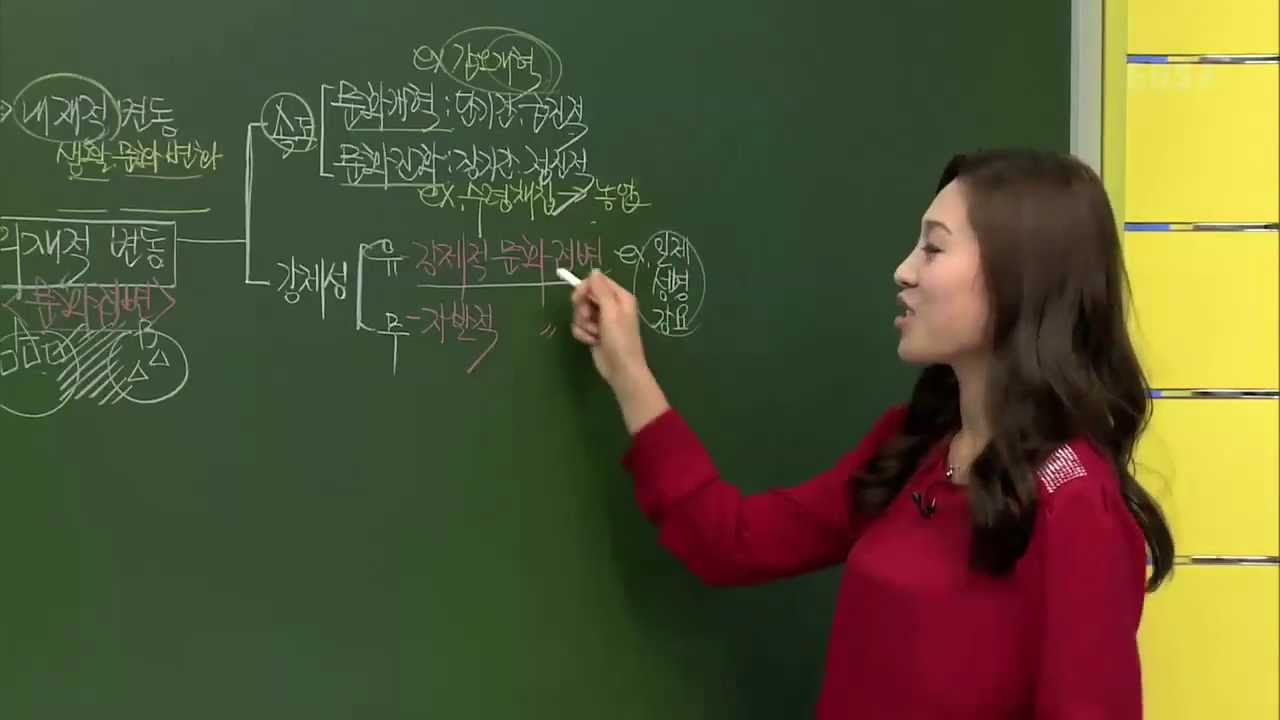 ex 갑오개혁
내재적 변동
속도
문화개혁 : 단기간. 급진적
생활. 문화 변화
문화진화 : 장기간. 점진적
ex. 수렵채집 → 농업
외재적 변동
강제성
유 강제적 문화 접변
ex. 일제
창씨
강요
<문화접변>
무 - 자발적 〃
B